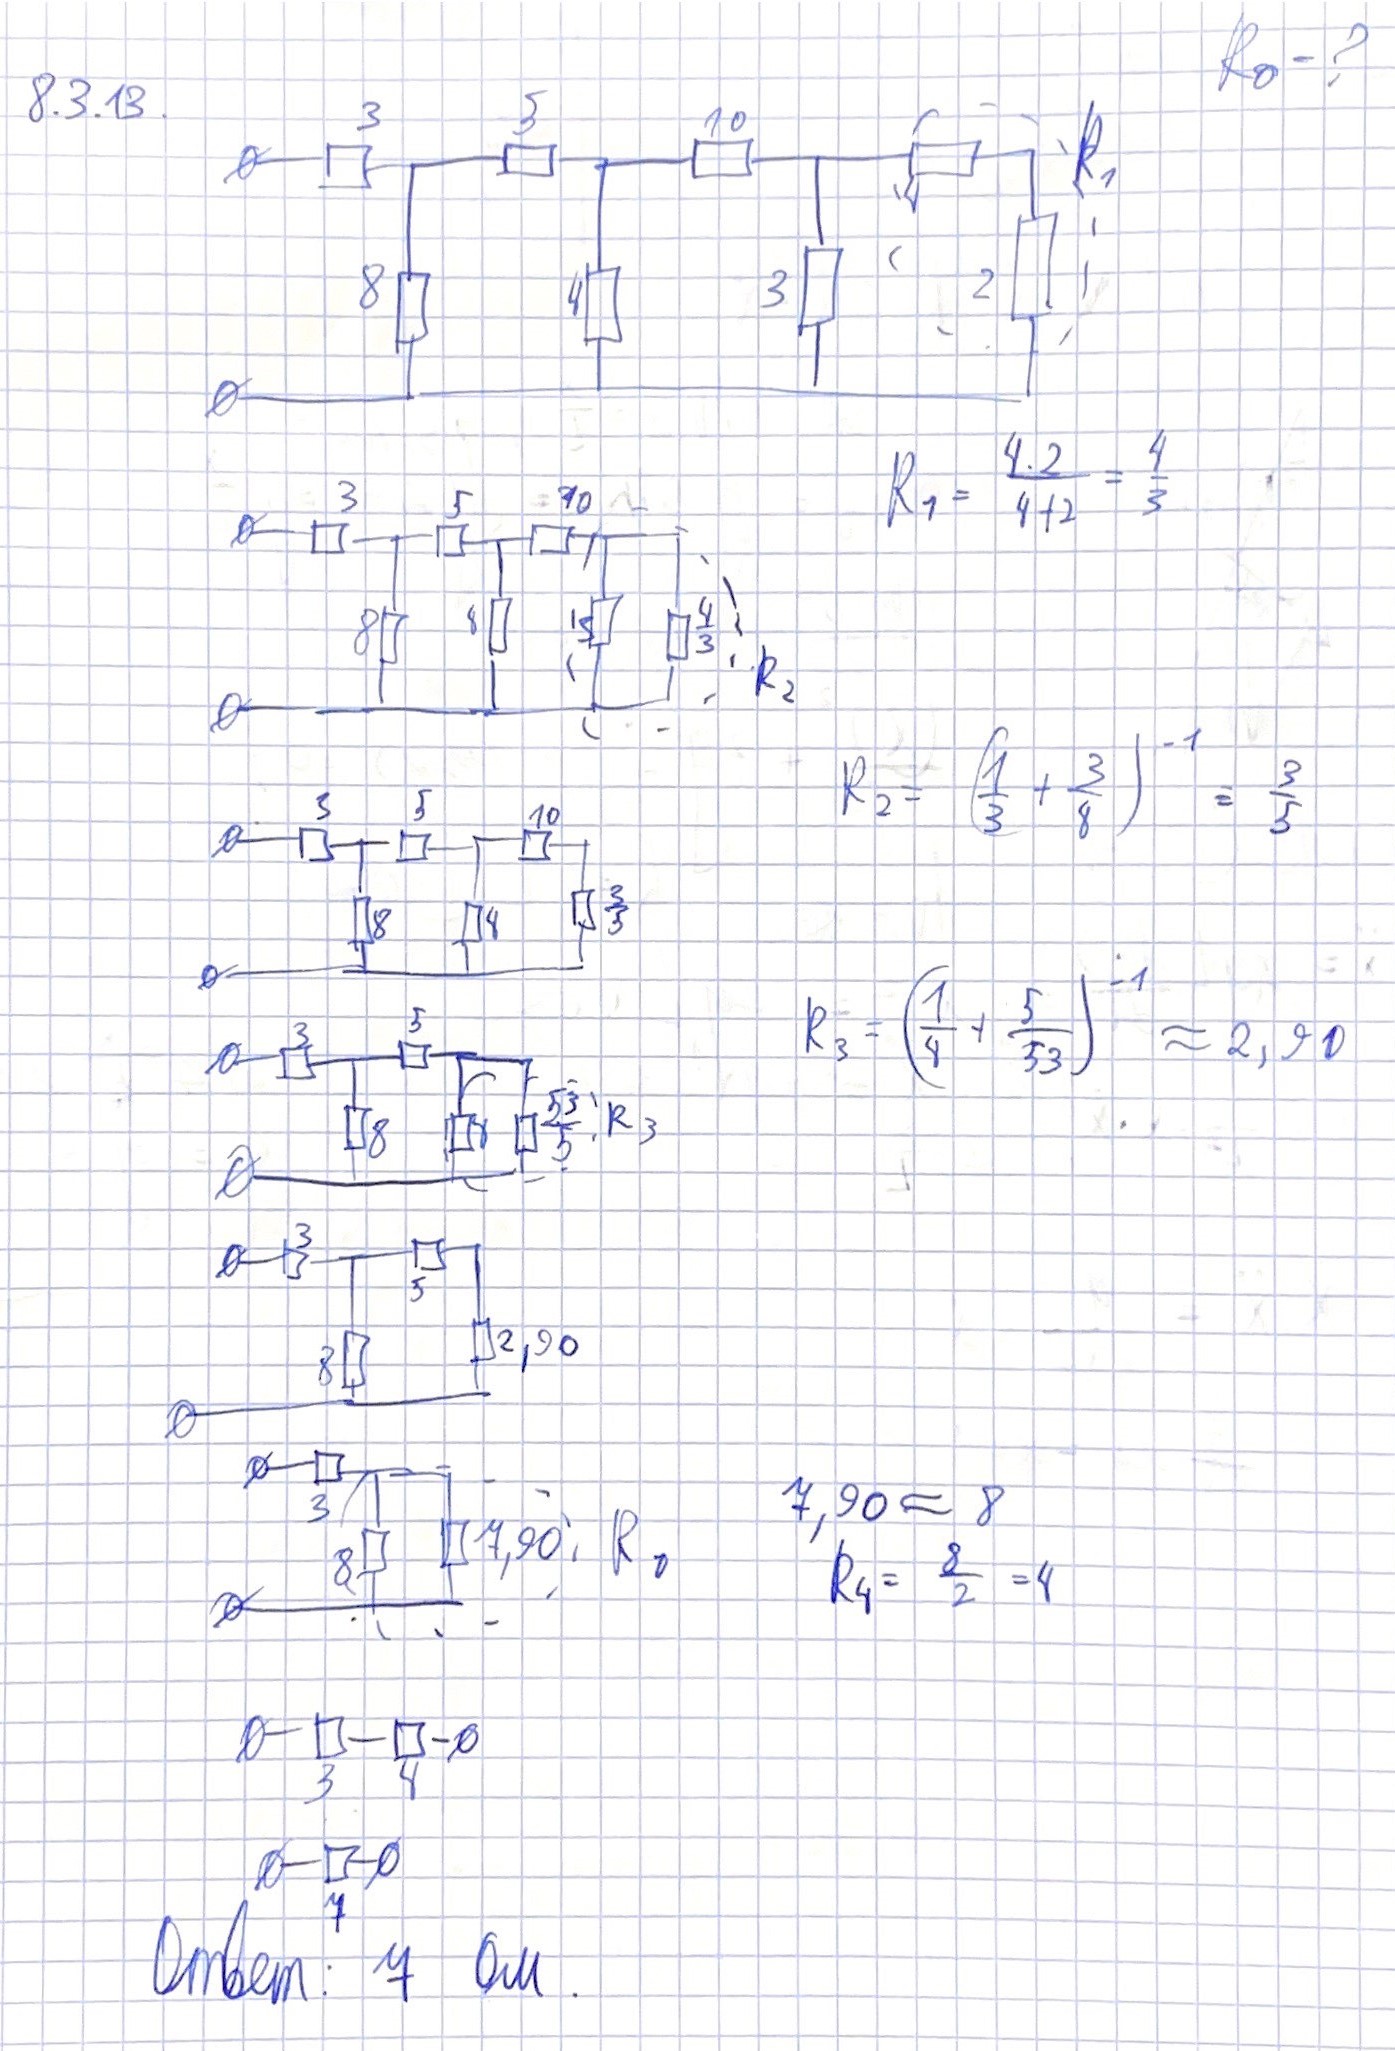 R₀ - ?
8.3.13.
3 5 10 4 R₁
8 4 3 2
R₁ = 4·2 / 4+2 = 4/3
3 5 10
8 4 3 4/3 R₂
R₂ = (1/3 + 3/8)⁻¹ = 3/5
3 5 10
8 4 3/5
R₃ = (1/4 + 5/53)⁻¹ ≈ 2,90
3 5
8 4 53/5 R₃
3 5
8 2,90
3
8 7,90 R₀
7,90 ≈ 8
R₄ = 8/2 = 4
3 4
7
Ответ: 7 Ом.